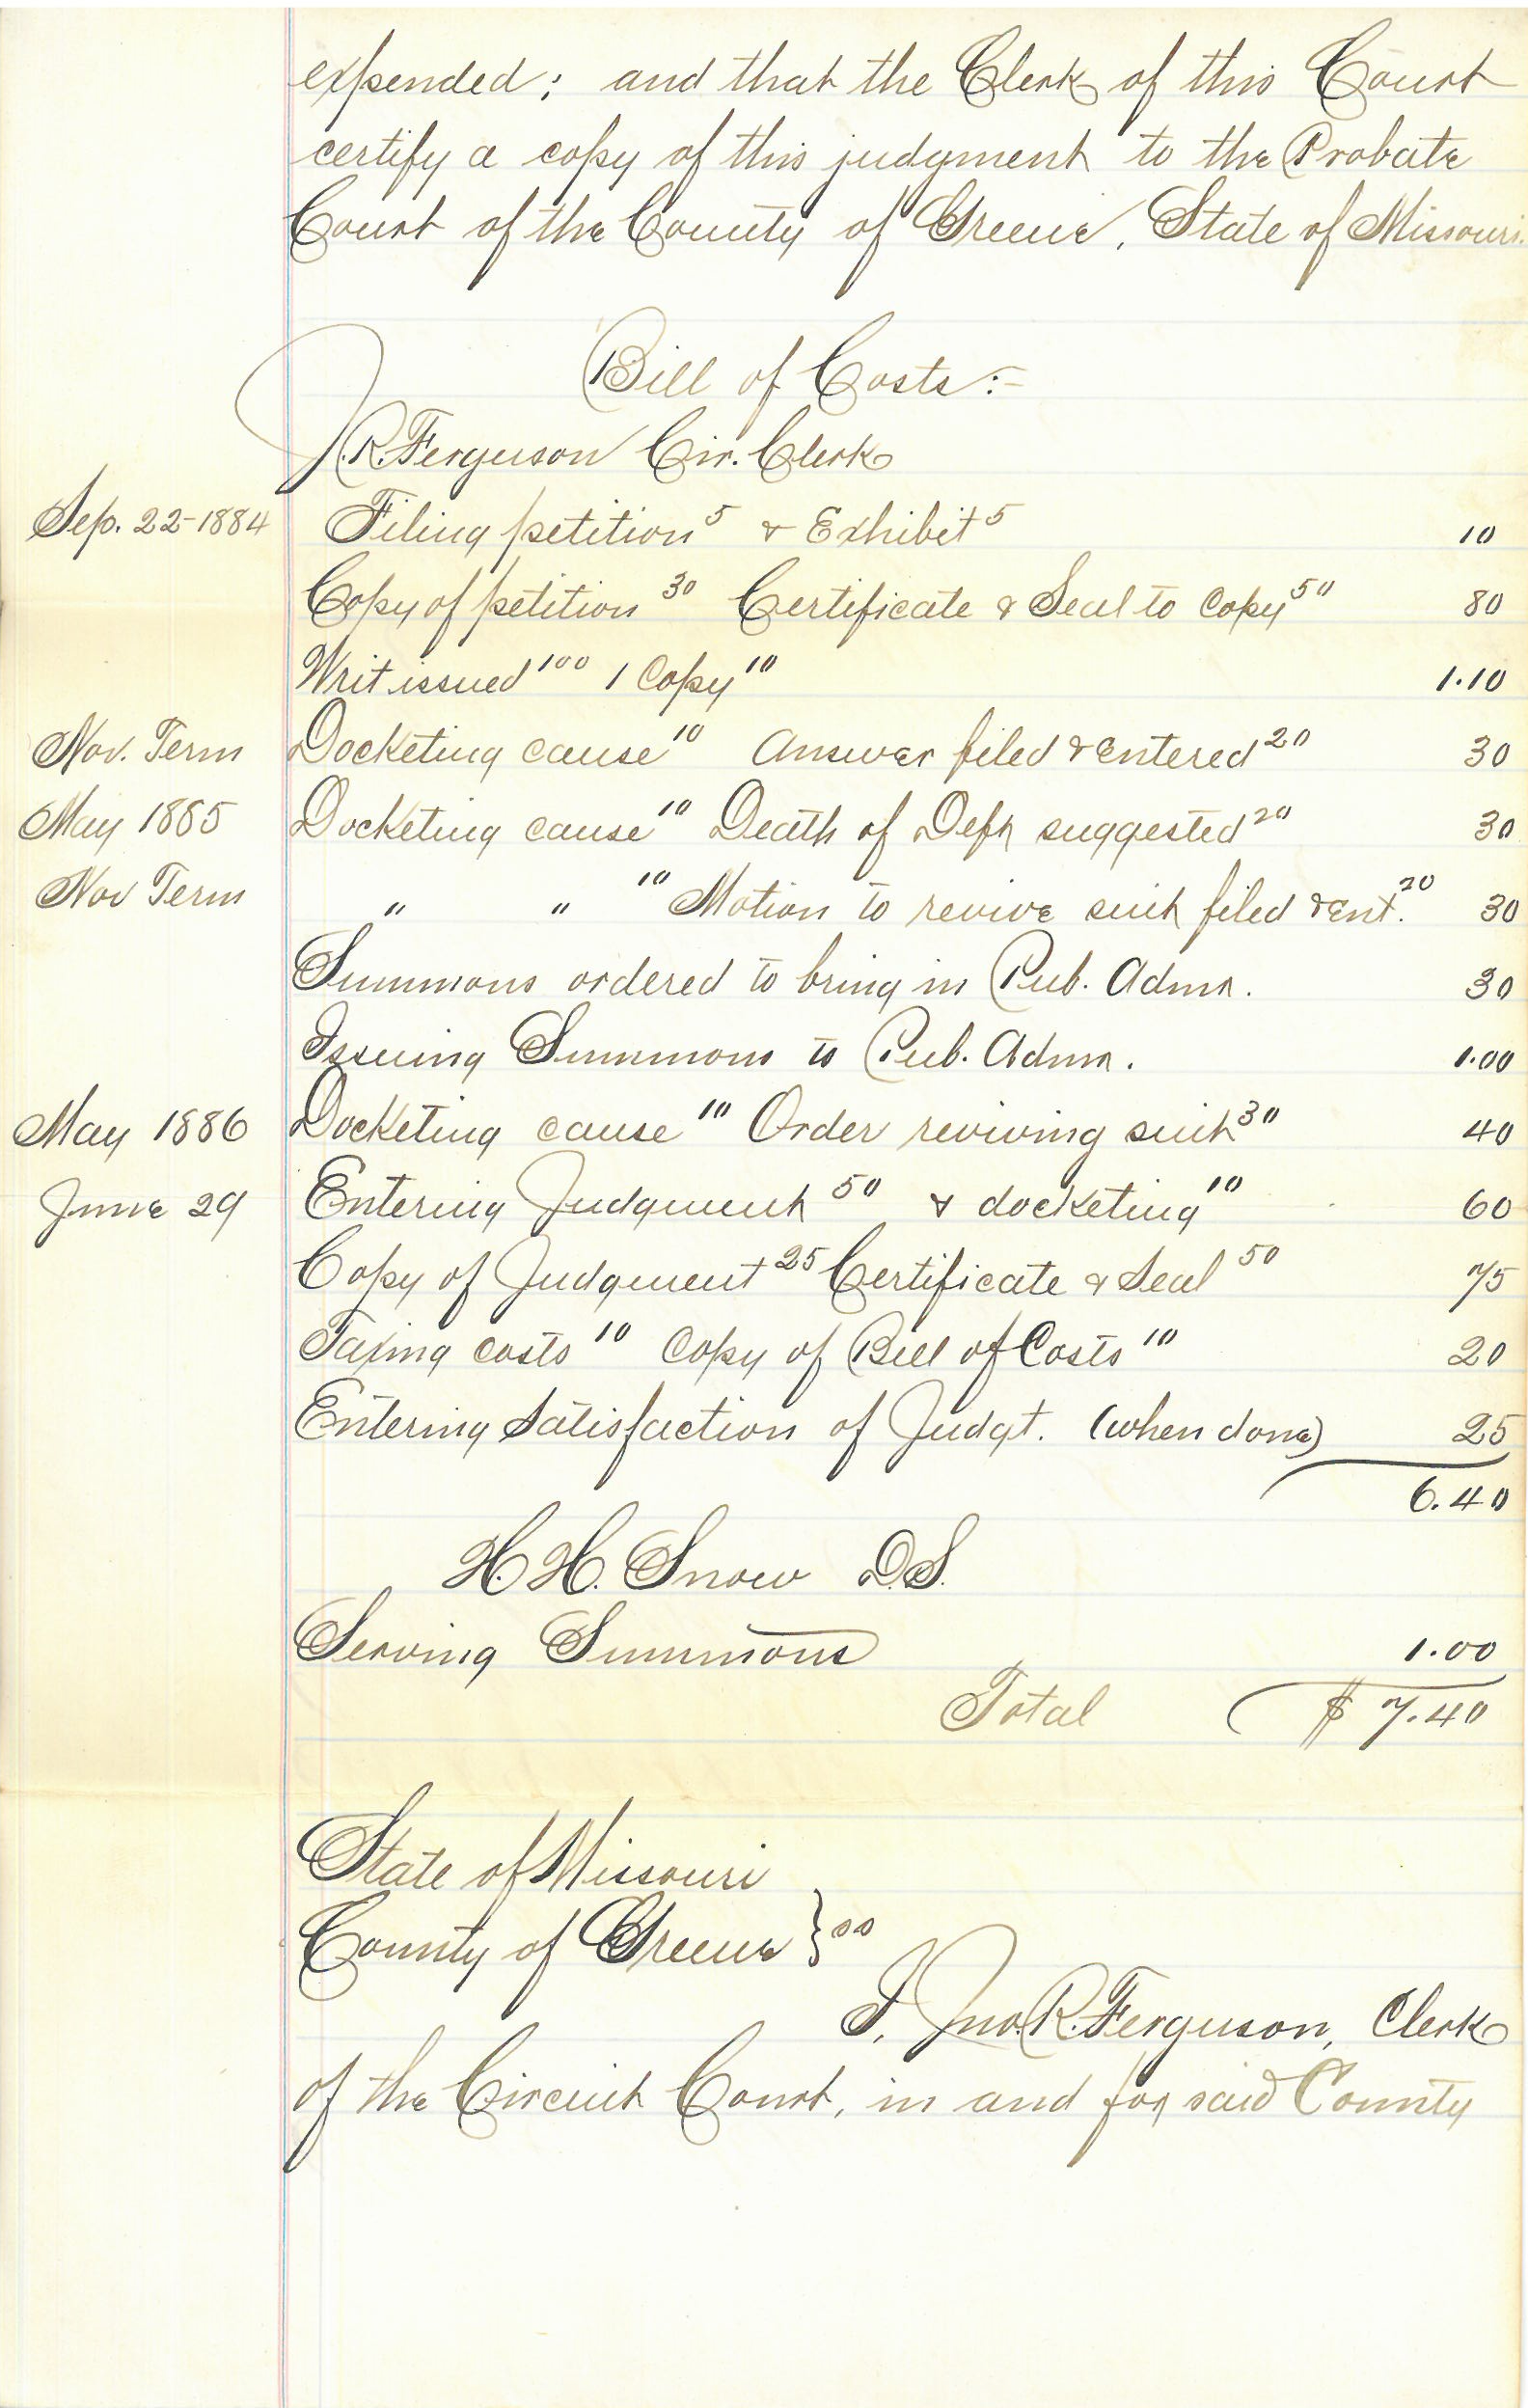 expended; and that the Clerk of this Court
certify a copy of this judgment to the Probate
Court of the County of Greene, State of Missouri.
Bill of Costs:-
J.R. Ferguson Cir. Clerk
Sep. 22-1884 Filing petition 5 & Exhibit 5 10
Copy of petition 30 Certificate & Seal to Copy 50 80
Writ issued 100 1 Copy 10 1.10
Nov. Term Docketing cause 10 Answer filed & entered 20 30
May 1885 Docketing cause 10 Death of Deft suggested 20 30
Nov Term " " 10 Motion to revive suit filed & ent. 20 30
Summons ordered to bring in Pub. Admr. 30
Issuing Summons to Pub. Admr. 1.00
May 1886 Docketing cause 10 Order reviving suit 30 40
June 29 Entering Judgment 50 & docketing 10 60
Copy of Judgment 25 Certificate & Seal 50 75
Taxing costs 10 Copy of Bill of Costs 10 20
Entering Satisfaction of Judgt. (when done) 25
6.40
H.H. Snow D.S.
Serving Summons 1.00
Total $ 7.40
State of Missouri
County of Greene } ss
I, Jno. R. Ferguson, Clerk
of the Circuit Court, in and for said County